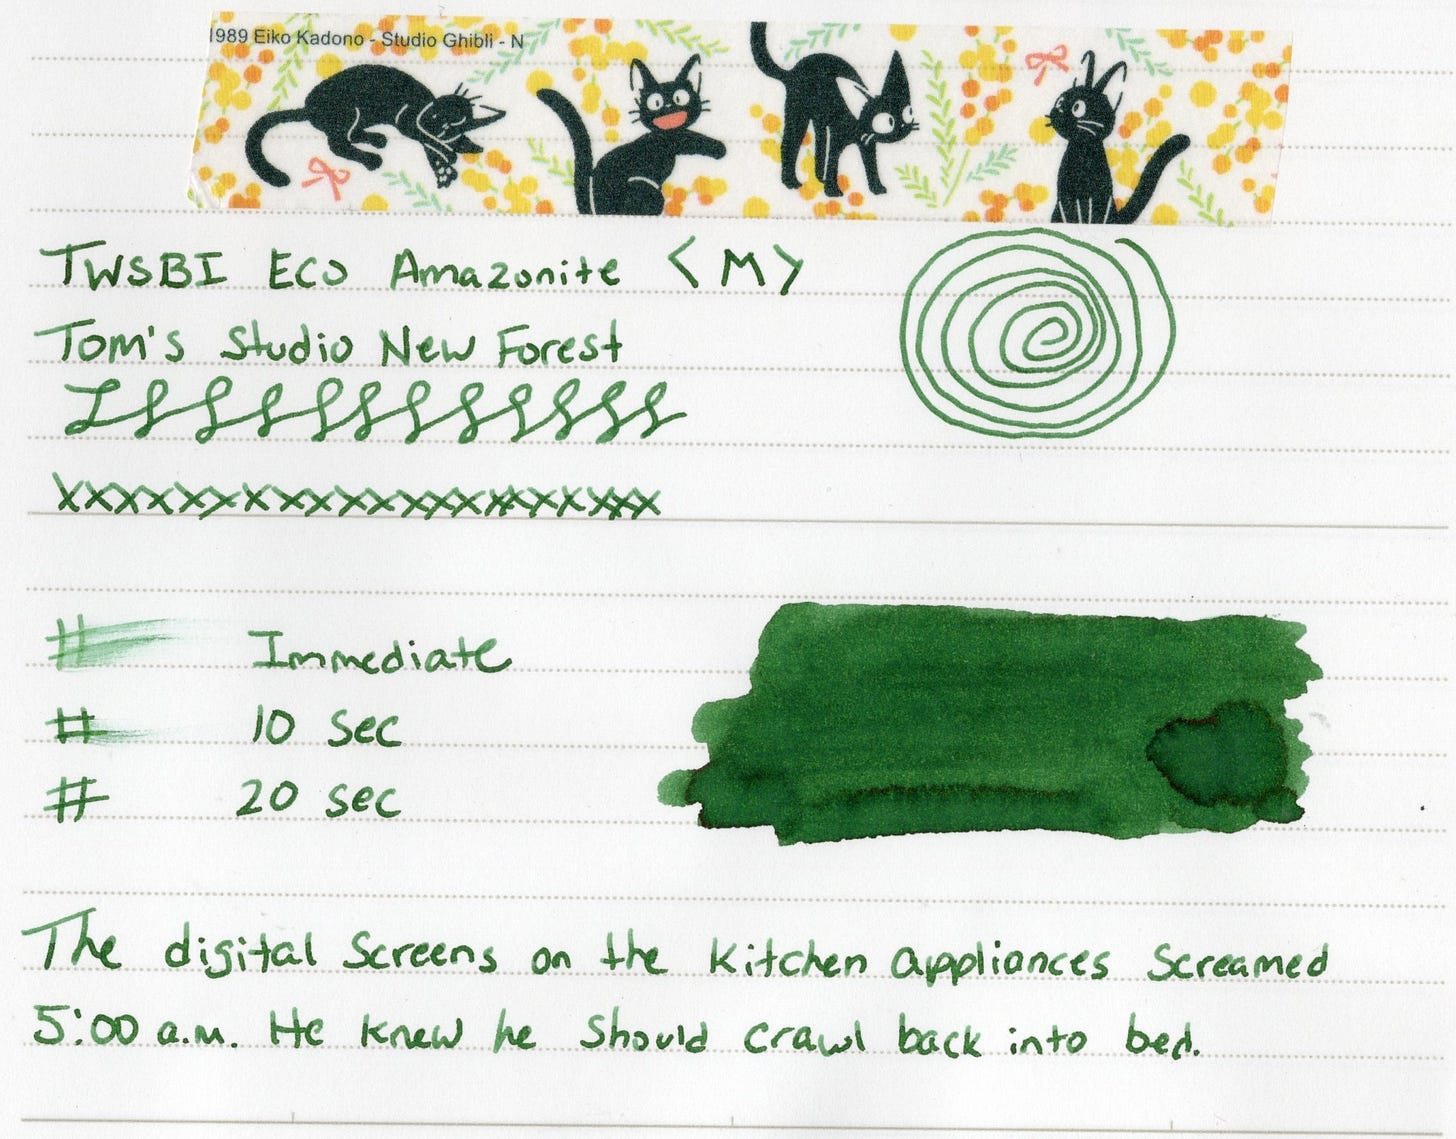 1989 Eiko Kadono - Studio Ghibli - N
TWSBI Eco Amazonite <M>
Tom's Studio New Forest
xxxxxxxxxxxxxxxxxxx
# Immediate
# 10 sec
# 20 sec
The digital screens on the kitchen appliances screamed
5:00 a.m. He knew he should crawl back into bed.